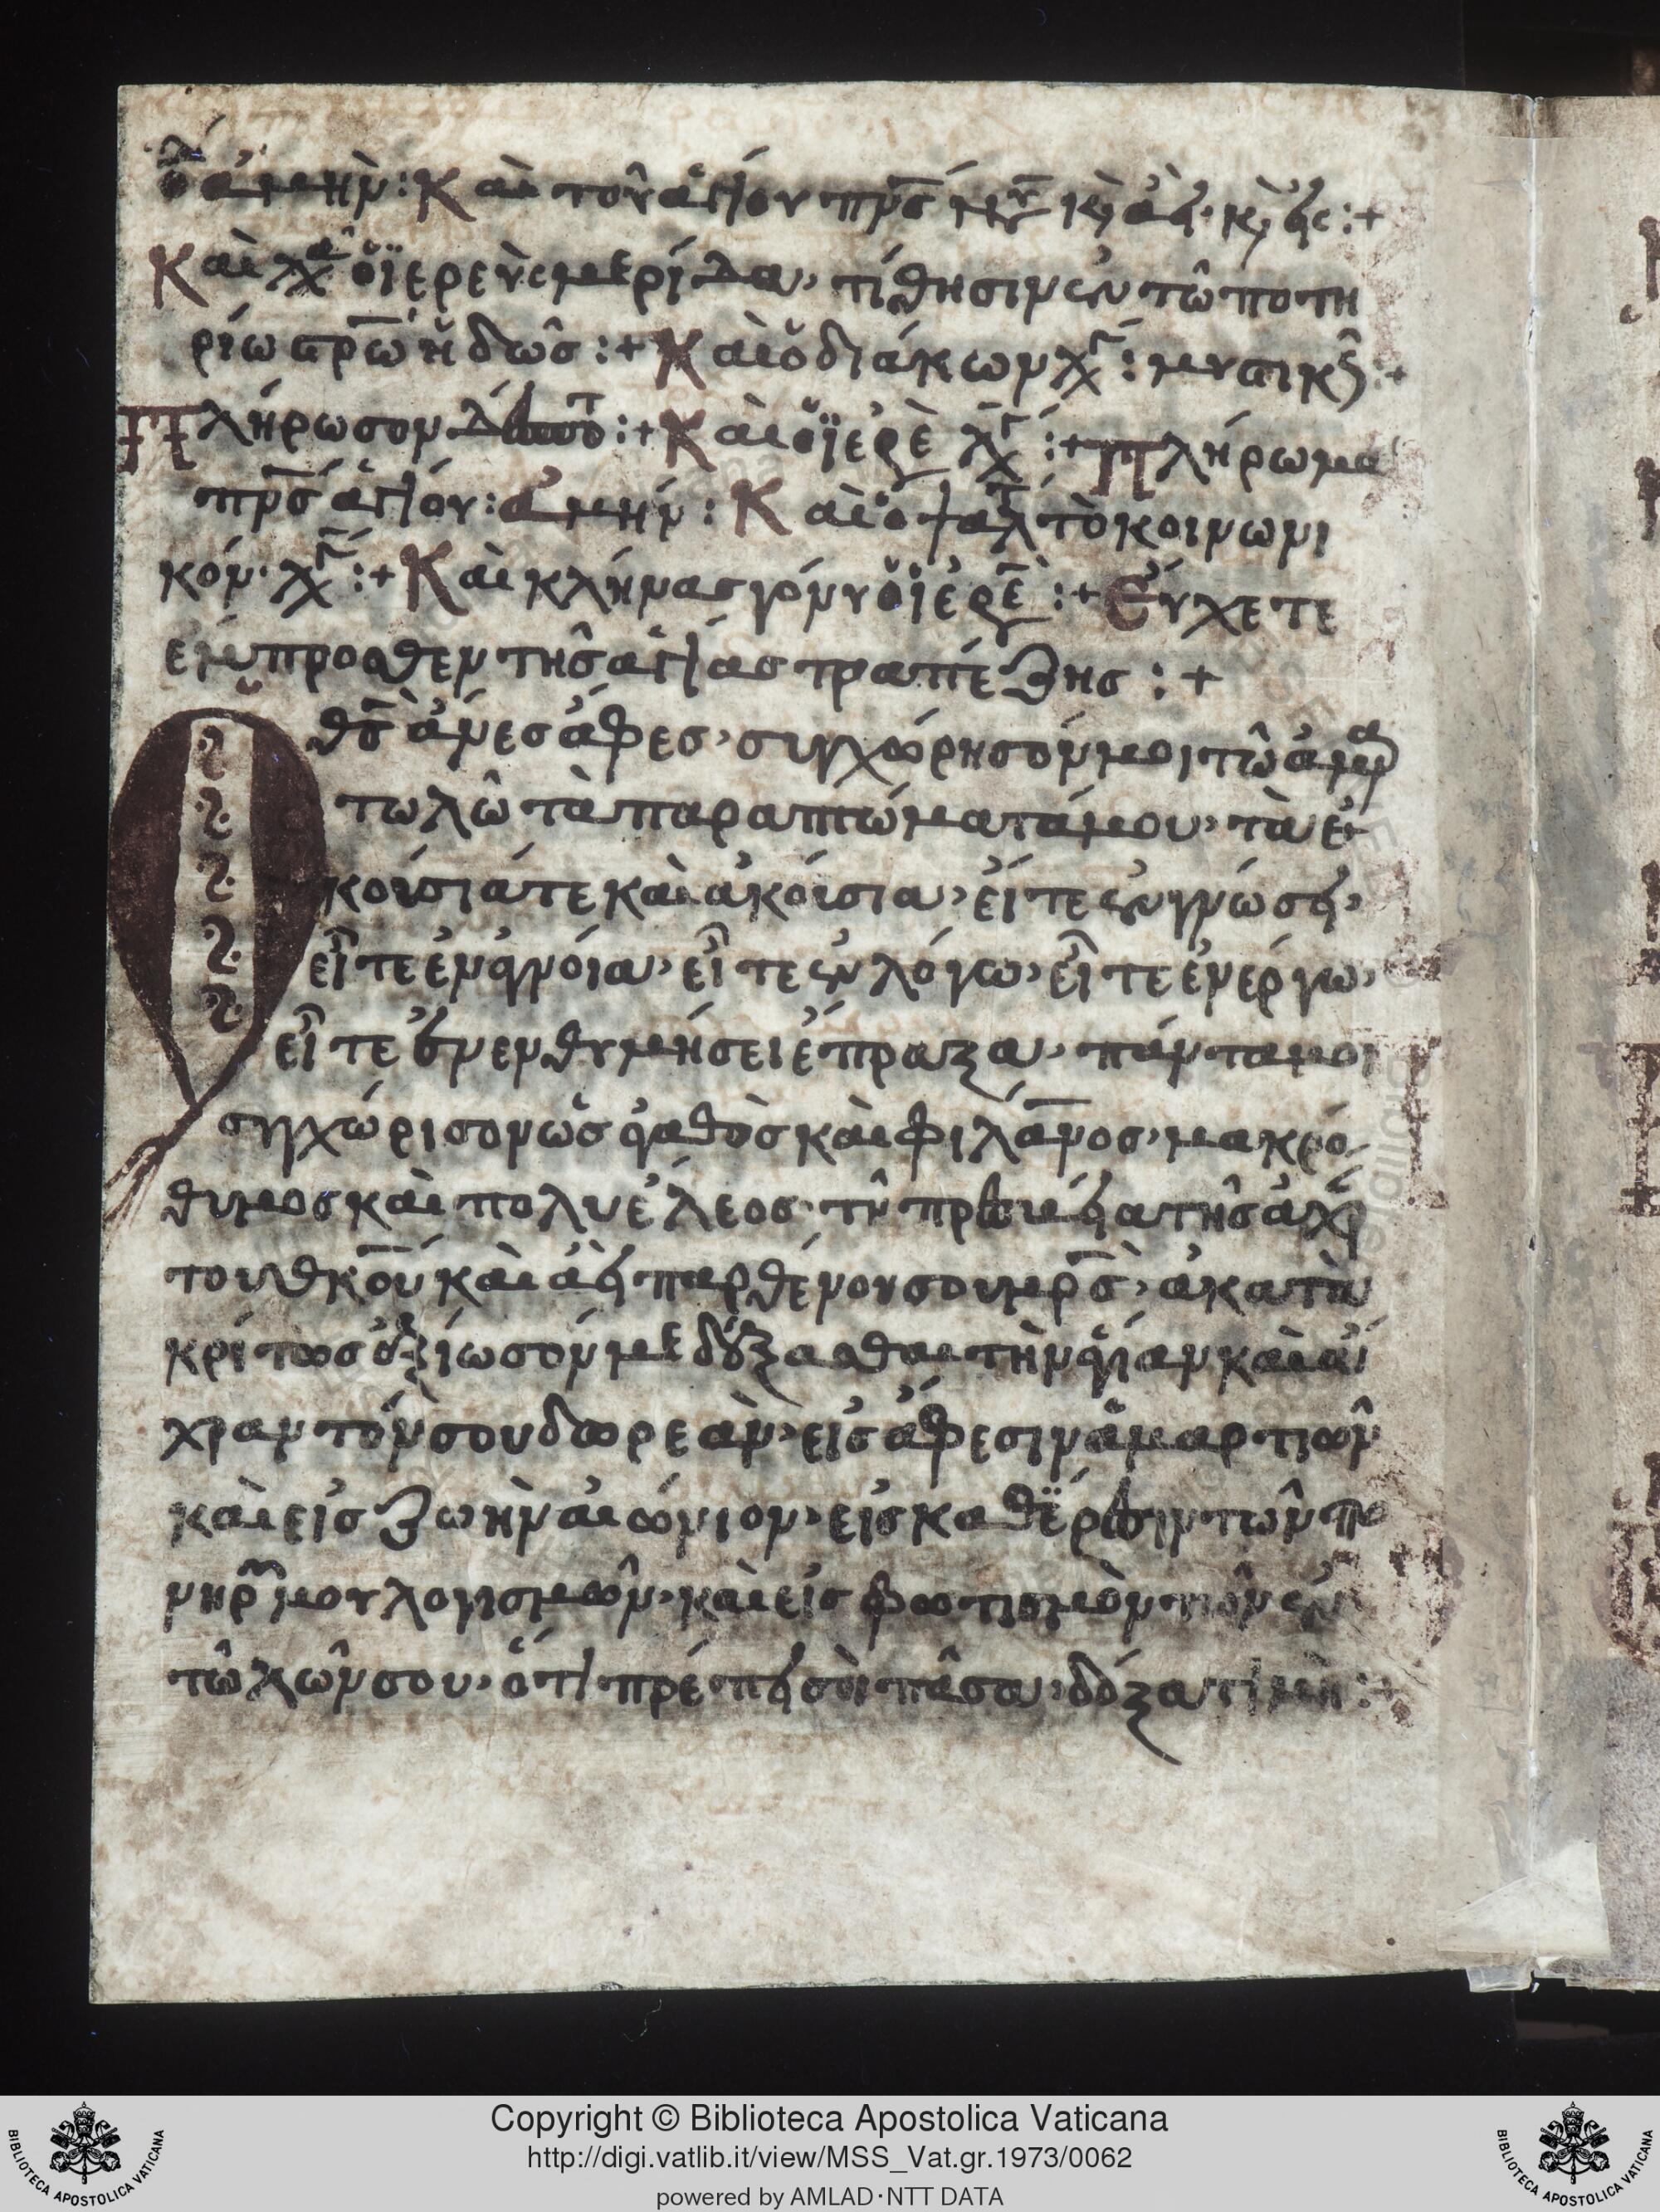 ὁ ἀμήν: Καὶ τοῦ ἁγίου πνς νῦν κ, ἀεὶ· κ, εἰς:+
Καὶ λα ὁ ἱερεὺς μερίδα, τίθησιν ἐν τῶ ποτη
ρίω σρω ηδῶς:+ Καὶ ὁ διάκων λγ: μυστικ:+
Πλήρωσον δέσπο:+ Καὶ ὁ ἱερὲ λγ:+ Πλήρωμα
πνς ἁγίου: ἀμήν: Καὶ ὁ ψαλτ τὸ κοινωνι
κόν· λγ:+ Καὶ κλήνας γόνυ ὁ ἱερὲ:+ Εὔχετε
ἔμπροσθεν τῆς ἁγίας τραπέζης:+
Ὁ θς ἄνες ἄφες, συγχώρησόν μοι τῶ ἁμαρ
τωλῶ τὰ παραπτώματά μου, τὰ ἑ
κούσιά τε καὶ ἀκούσια, εἴτε ἐν γνώσει,
εἶτε ἐν ἀγνοία, εἶτε ἐν λόγω, εἶτε ἐν ἔργω,
εἶτε ἐν ἐνθυμήσει ἔπραξα, πάντα μοι
συγχώρισον ὡς ἀγαθὸς καὶ φιλάνος, μακρό
θυμος καὶ πολυέλεος· τῆ πρεσβεία τῆς ἀχρ
του θκου καὶ ἀεὶ παρθένου σου μρς, ἀκατα
κρίτως ἀξίωσόν με δέξασθαι τὴν ἁγίαν καὶ ἄ
χραντόν σου δωρεὰν, εἰς ἄφεσιν ἁμαρτιῶν
καὶ εἰς ζωὴν αἰώνιον, εἰς καθέρεσιν τῶν πο
νηρῶν μου λογισμῶν, καὶ εἰς φωτισμὸν τῶν ἐν
τολῶν σου· ὅτι πρέπει σοὶ πᾶσα, δόξα τιμὴ:+
Copyright © Biblioteca Apostolica Vaticana
http://digi.vatlib.it/view/MSS_Vat.gr.1973/0062
powered by AMLAD·NTT DATA
BIBLIOTECA APOSTOLICA VATICANA
BIBLIOTECA APOSTOLICA VATICANA